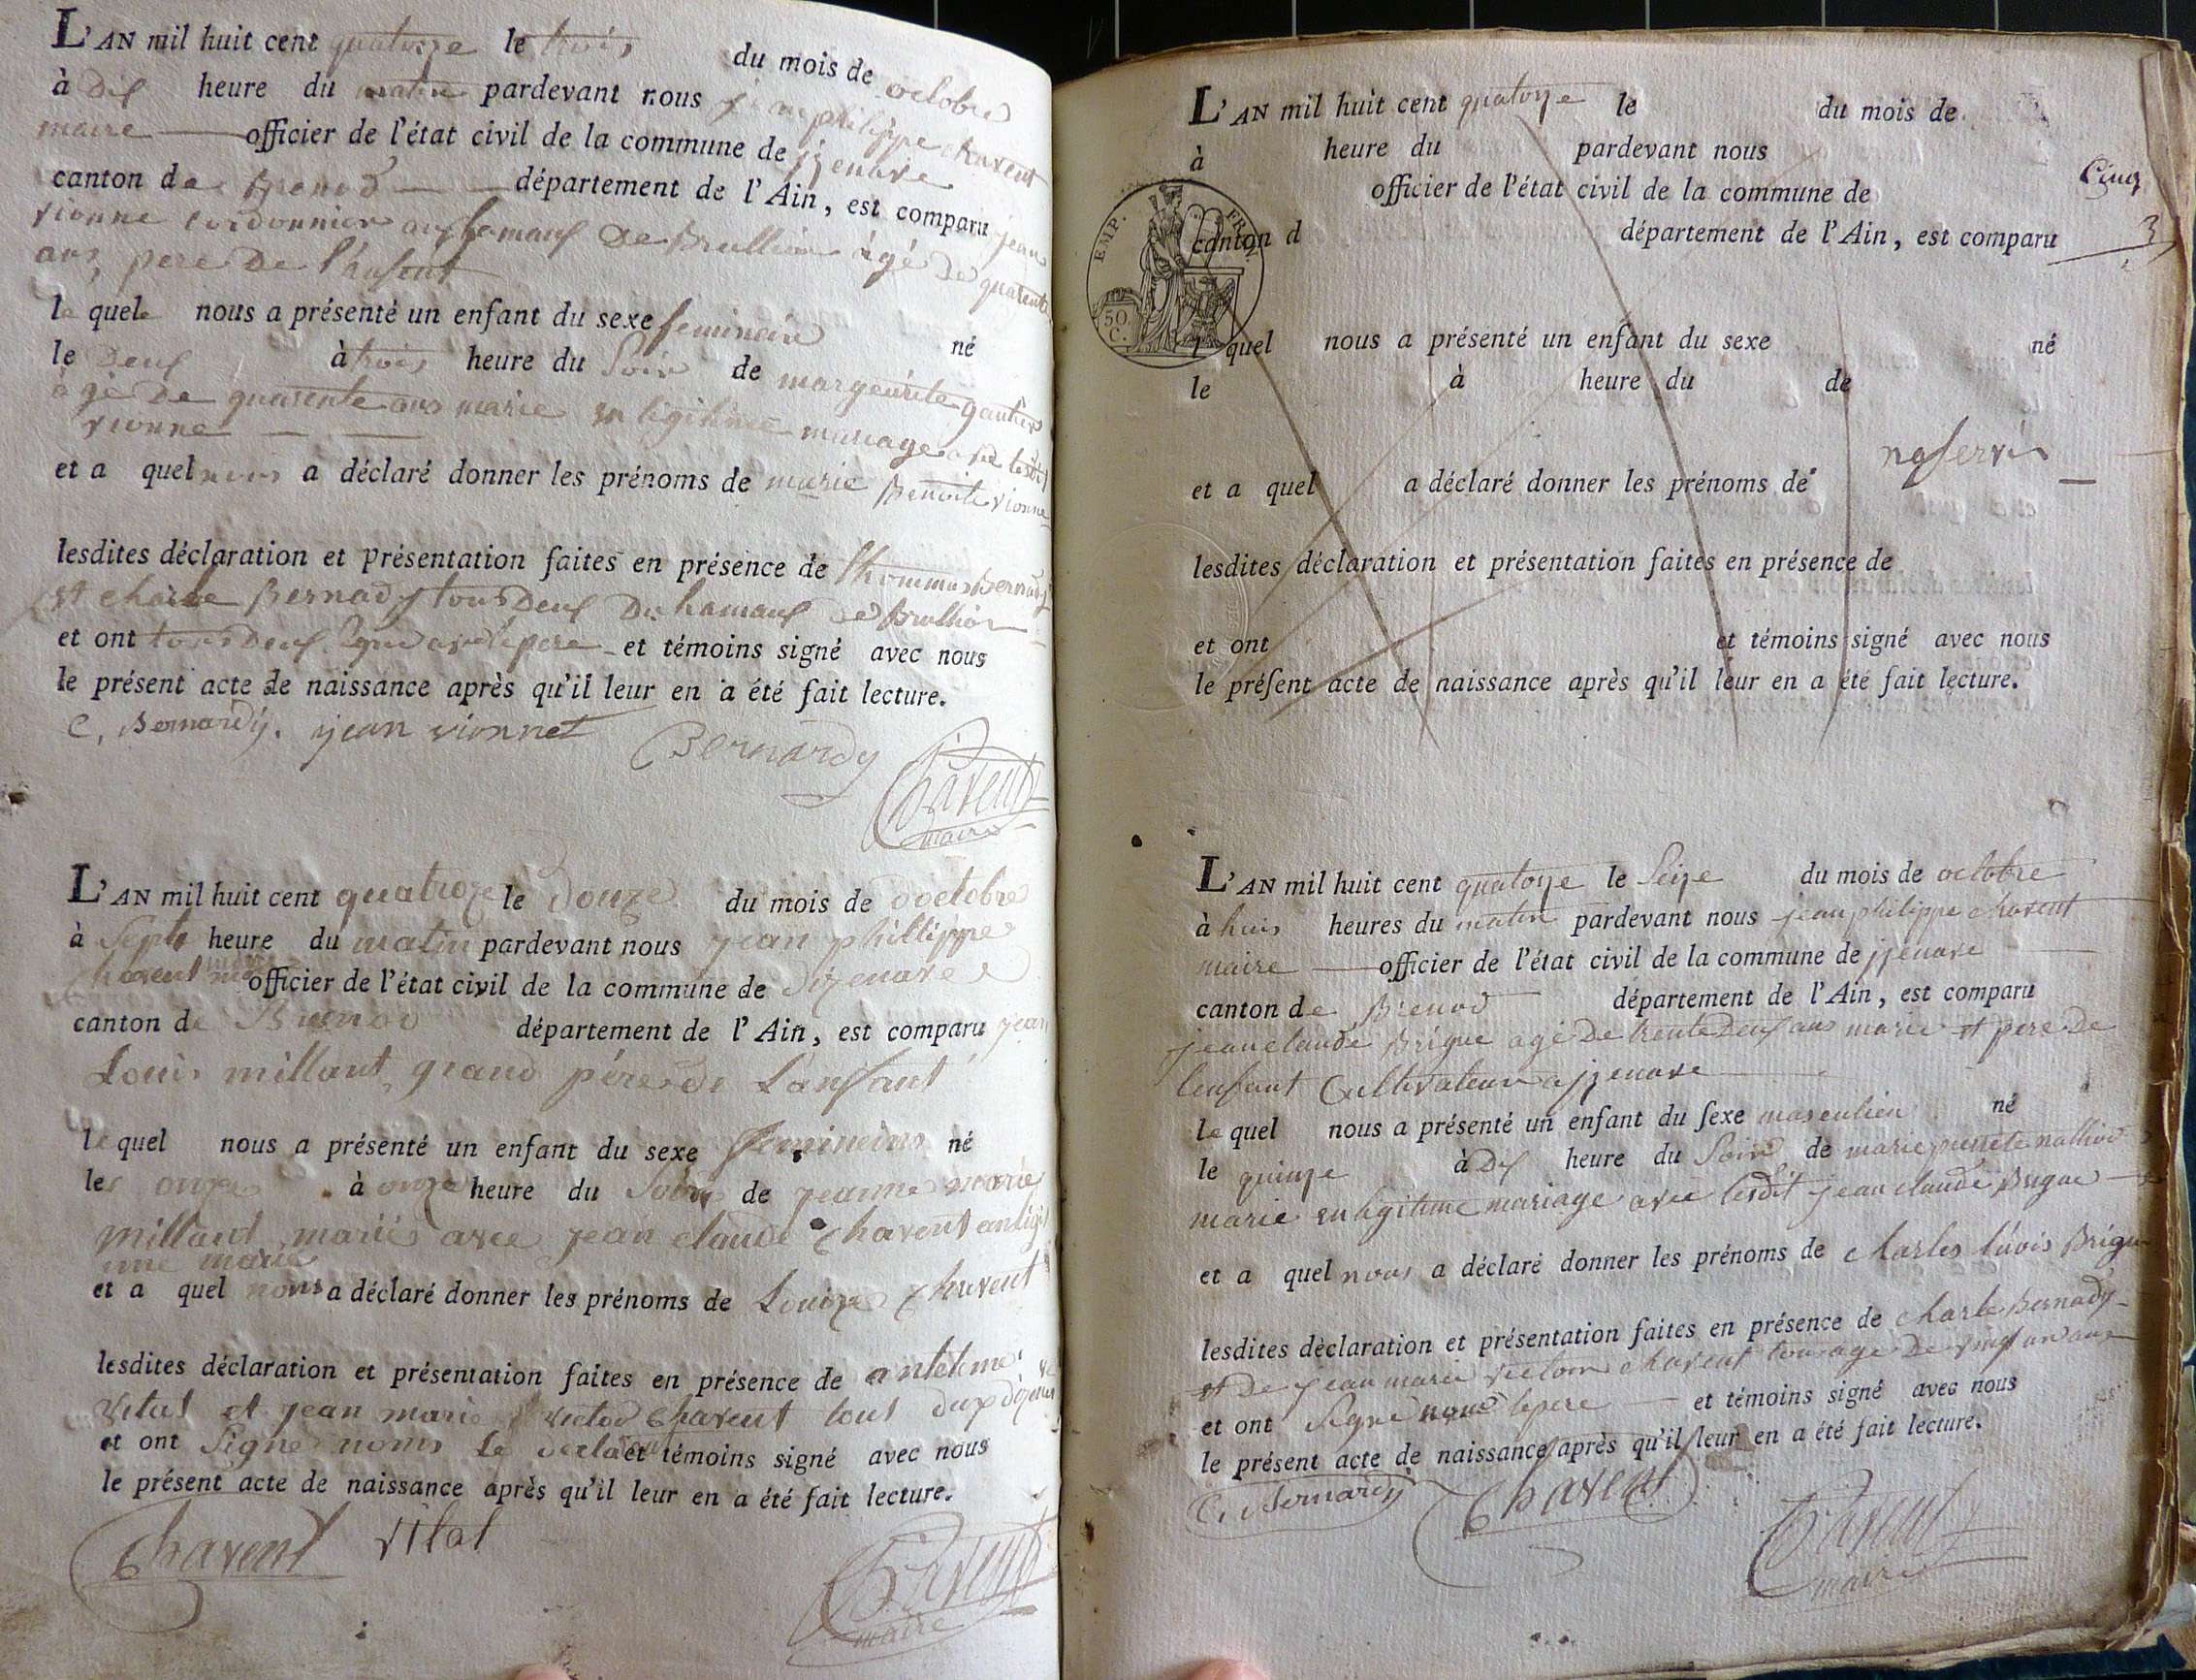 L'AN mil huit cent quatorze le trois du mois de octobre
à dix heure du matin pardevant nous jean philippe chavent
maire officier de l'état civil de la commune de izenave
canton de Brenod département de l'Ain, est comparu jean
vionne cordonnier au hamaux de Brullion âgé de quarente
ans, pere de l'enfent
le quele nous a présenté un enfant du sexe feminein né
le deux à trois heure du soir de margeurite gautier
âgé de quarente ans marie en légitimee mariage avec ledit
vionne
et a quel nous a déclaré donner les prénoms de marie Benoite vionne
lesdites déclaration et présentation faites en présence de thommas Bernady
et charle Bernady tous deux du hamaux de Brullion
et ont tous deux signe avec le pere et témoins signé avec nous
le présent acte de naissance après qu'il leur en a été fait lecture.
C. Bernardy. jean vionnet Bernardy Chavent
maire
L'AN mil huit cent quatroze le Douze du mois de doctobre
à septe heure du matin pardevant nous jean phillippe
chavent maire officier de l'état civil de la commune de dizenave
canton de Brenod département de l'Ain, est comparu jean
Louis millant grand pére de L'anfant
le quel nous a présenté un enfant du sexe feminein né
le onze à onze heure du soir de jeanne marie
millant mariée avec jean claude chavent
et a quel nous a déclaré donner les prénoms de Louize chavent
lesdites déclaration et présentation faites en présence de antelme
vital et jean marie victor chavent tous dux
et ont signé noms le et témoins signé avec nous
le présent acte de naissance après qu'il leur en a été fait lecture.
Chavent vital Chavent
maire
L'AN mil huit cent quatorze le du mois de
à heure du pardevant nous
Cinq
officier de l'état civil de la commune de
EMP. FRAN.
canton d département de l'Ain, est comparu
3
50 C.
l quel nous a présenté un enfant du sexe né
le à heure du de
et a quel a déclaré donner les prénoms de
lesdites déclaration et présentation faites en présence de
et ont et témoins signé avec nous
le présent acte de naissance après qu'il leur en a été fait lecture.
L'AN mil huit cent quatorze le seize du mois de octobre
à huis heures du matin pardevant nous jean philippe chavent
maire officier de l'état civil de la commune de izenave
canton de Brenod département de l'Ain, est comparu
jean claude Brigue age de trente deux ans marie et pere de
lenfant Cultivateur a izenave
le quel nous a présenté un enfant du sexe masculien né
le quinze à dix heure du soire de marie perrete nalliod
marie en legitime mariage avec lesdit jean claude Brigue
et a quel nous a déclaré donner les prénoms de charles luois Brigue
lesdites dèclaration et présentation faites en présence de charle Bernady
et de jean marie victoire chavent tous age de vingt un ans
et ont signe nous le pere et témoins signé avec nous
le présent acte de naissance après qu'il leur en a été fait lecture.
C. Bernardy Chavent Chavent
maire